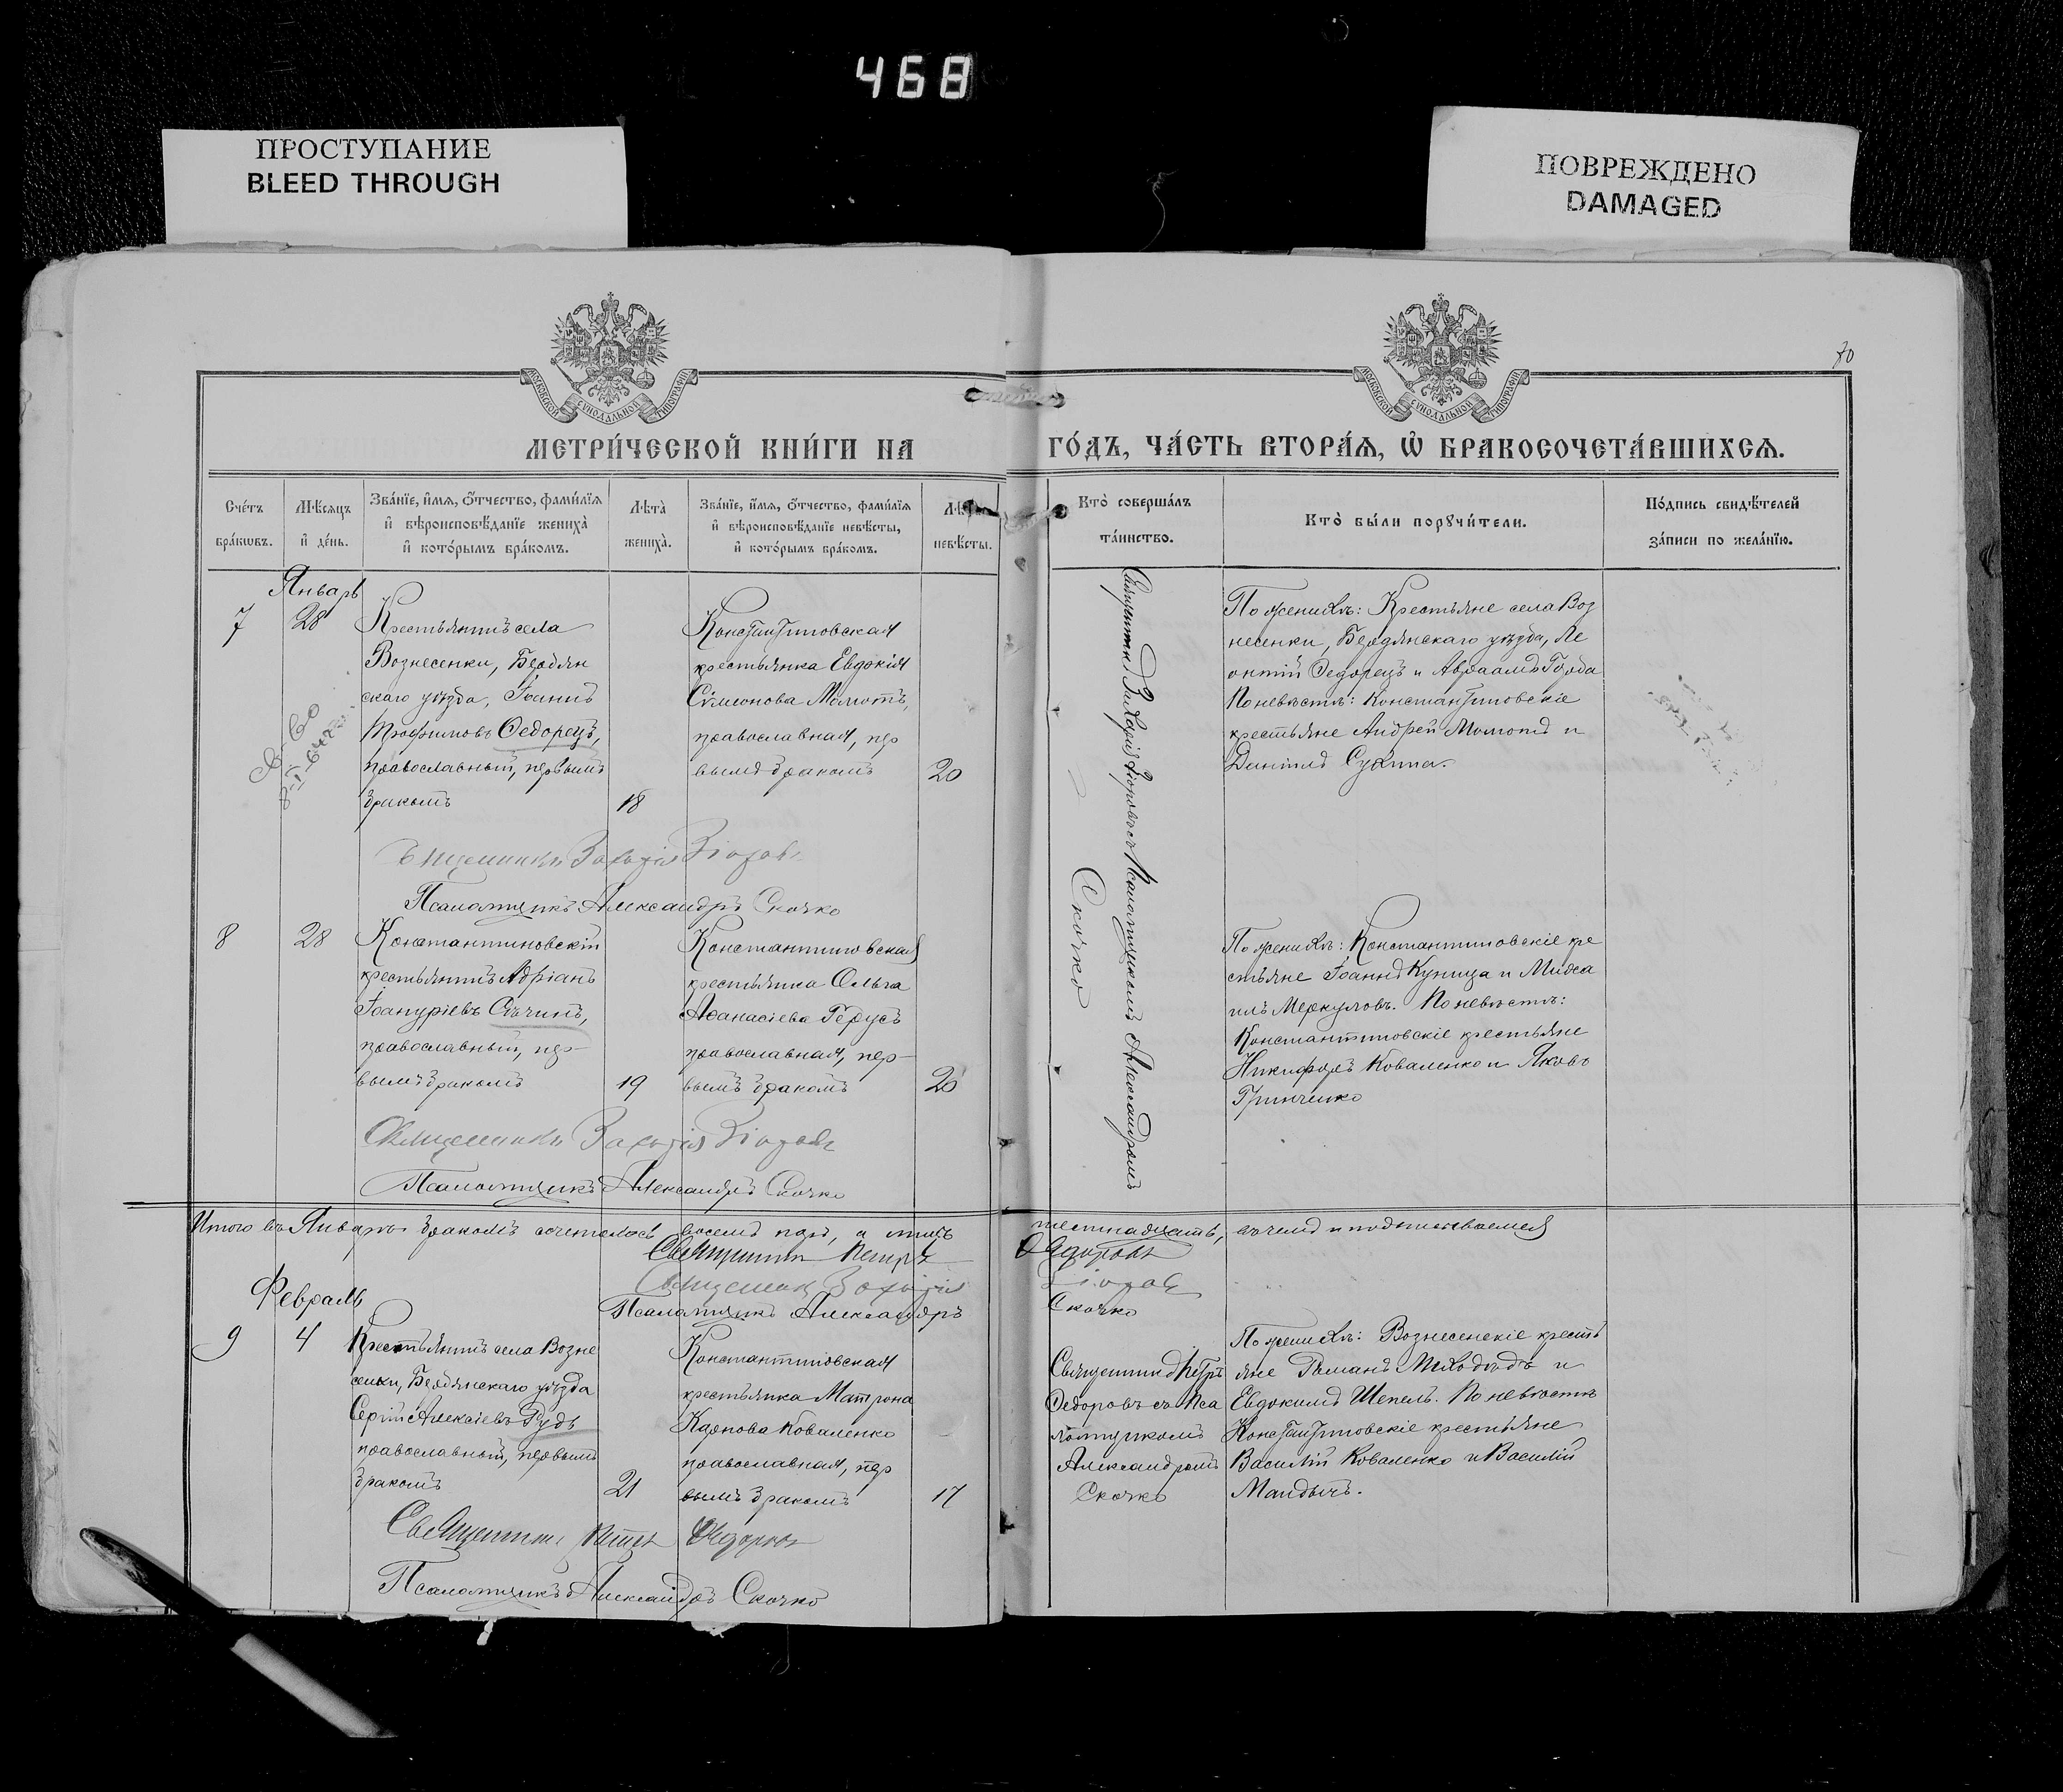 468
ПРОСТУПАНИЕ
BLEED THROUGH
ПОВРЕЖДЕНО
DAMAGED
МОСКОВСКОЙ СѴНОДАЛЬНОЙ ТИПОГРАФІИ
МОСКОВСКОЙ СѴНОДАЛЬНОЙ ТИПОГРАФІИ
70
МЕТРИ́ЧЕСКОЙ КНИ́ГИ НА
ГО́ДЪ, ЧА́СТЬ ВТОРА́Ѧ, Ѽ БРАКОСОЧЕТА́ВШИХСѦ.
Сче́тъ бра́кѡвъ.
Мѣ́сяцъ и҆ де́нь.
Зва́нїе, и҆́мѧ, ѻ҆́тчество, фами́лїѧ и҆ вѣроисповѣ́данїе жениха̀ и҆ кото́рымъ бра́комъ.
Лѣта̀ жениха̀.
Зва́нїе, и҆́мѧ, ѻ҆́тчество, фами́лїѧ и҆ вѣроисповѣ́данїе невѣ́сты, и҆ кото́рымъ бра́комъ.
Лѣта̀ невѣ́сты.
Кто̀ соверша́лъ та́инство.
Кто̀ бы́ли порꙋчи́тели.
По́дпись свидѣ́телей за́писи по жела́нїю.
Январь
7
28
Крестьянинъ села
Вознесенки, Бердян
скаго уѣзда, Іоаннъ
Трофимовъ Ѳедорецъ,
православный, первымъ
бракомъ
18
Константиновская
крестьянка Евдокія
Сѵмеонова Момотъ,
православная, пер
вымъ бракомъ
20
Священник Захарій Діоровъ съ Псаломщикомъ Александромъ
Скочко
По женихѣ: Крестьяне села Воз
несенки, Бердянскаго уѣзда, Ле
онтій Ѳедорецъ и Авраамъ Горда
По невѣстѣ: Константиновскіе
крестьяне Андрей Момотъ и
Даніилъ Сухина.
Священникъ Захарія Діоровъ
Псаломщикъ Александръ Скочко
8
28
Константиновскій
крестьянинъ Адріанъ
Іоануріевъ Сѣчинъ,
православный, пер-
вымъ бракомъ
19
Константиновская
крестьянка Ольга
Аѳанасіева Герусъ
православная, пер-
вымъ бракомъ
20
По женихѣ: Константиновскіе кре
стьяне Іоаннъ Куница и Миха
илъ Меркуловъ. По невѣстѣ:
Константиновскіе крестьяне
Никифоръ Коваленко и Яковъ
Гринченко
Священникъ Захарія Діоровъ
Псаломщикъ Александръ Скочко
Итого въ Январѣ бракомъ сочеталось восемь паръ, а лицъ шестнадцать, въ чемъ и подписываемся
Священникъ Петръ Ѳедоровъ
Священникъ Захарія Діоровъ
Псаломщикъ Александръ Скочко
Февраль
9
4
Крестьянинъ села Возне
сенки, Бердянскаго уѣзда
Сергій Алексіевъ Рудь
православный, первымъ
бракомъ
21
Константиновская
крестьянка Матрона
Карпова Коваленко
православная, пер
вымъ бракомъ
17
Священникъ Петръ
Ѳедоровъ съ Пса
ломщикомъ
Александромъ
Скочко
По женихѣ: Вознесенскіе кресть
яне Романъ Молодыдъ и
Евдокимъ Шепель. По невѣстѣ
Константиновскіе крестьяне
Василій Коваленко и Василій
Мандычъ.
Священникъ Петръ Ѳедоровъ
Псаломщикъ Александръ Скочко